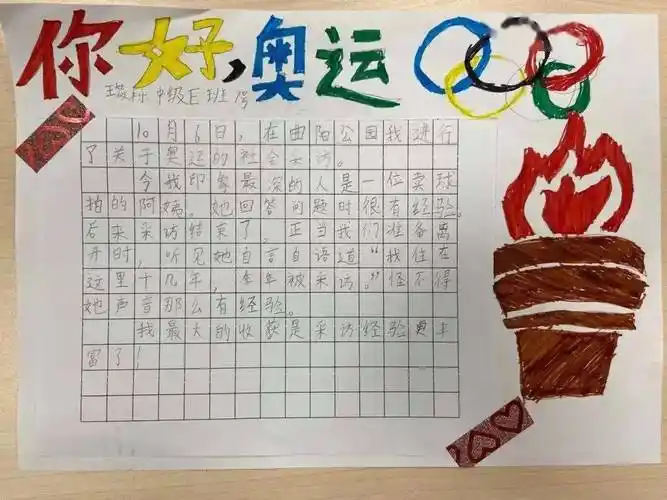 你好,奥运
中级E班
10月6日,在曲阳公园我进行
了关于奥运的社会采访。
令我印象最深的人是一位卖球
拍的阿姨。她回答问题时很有经验。
后来采访结束了,正当我们准备离
开时,听见她自言自语道“我住在
这里十几年,年年被采访。”怪不得
她声音那么有经验。
我最大的收获是采访经验更丰
富了!